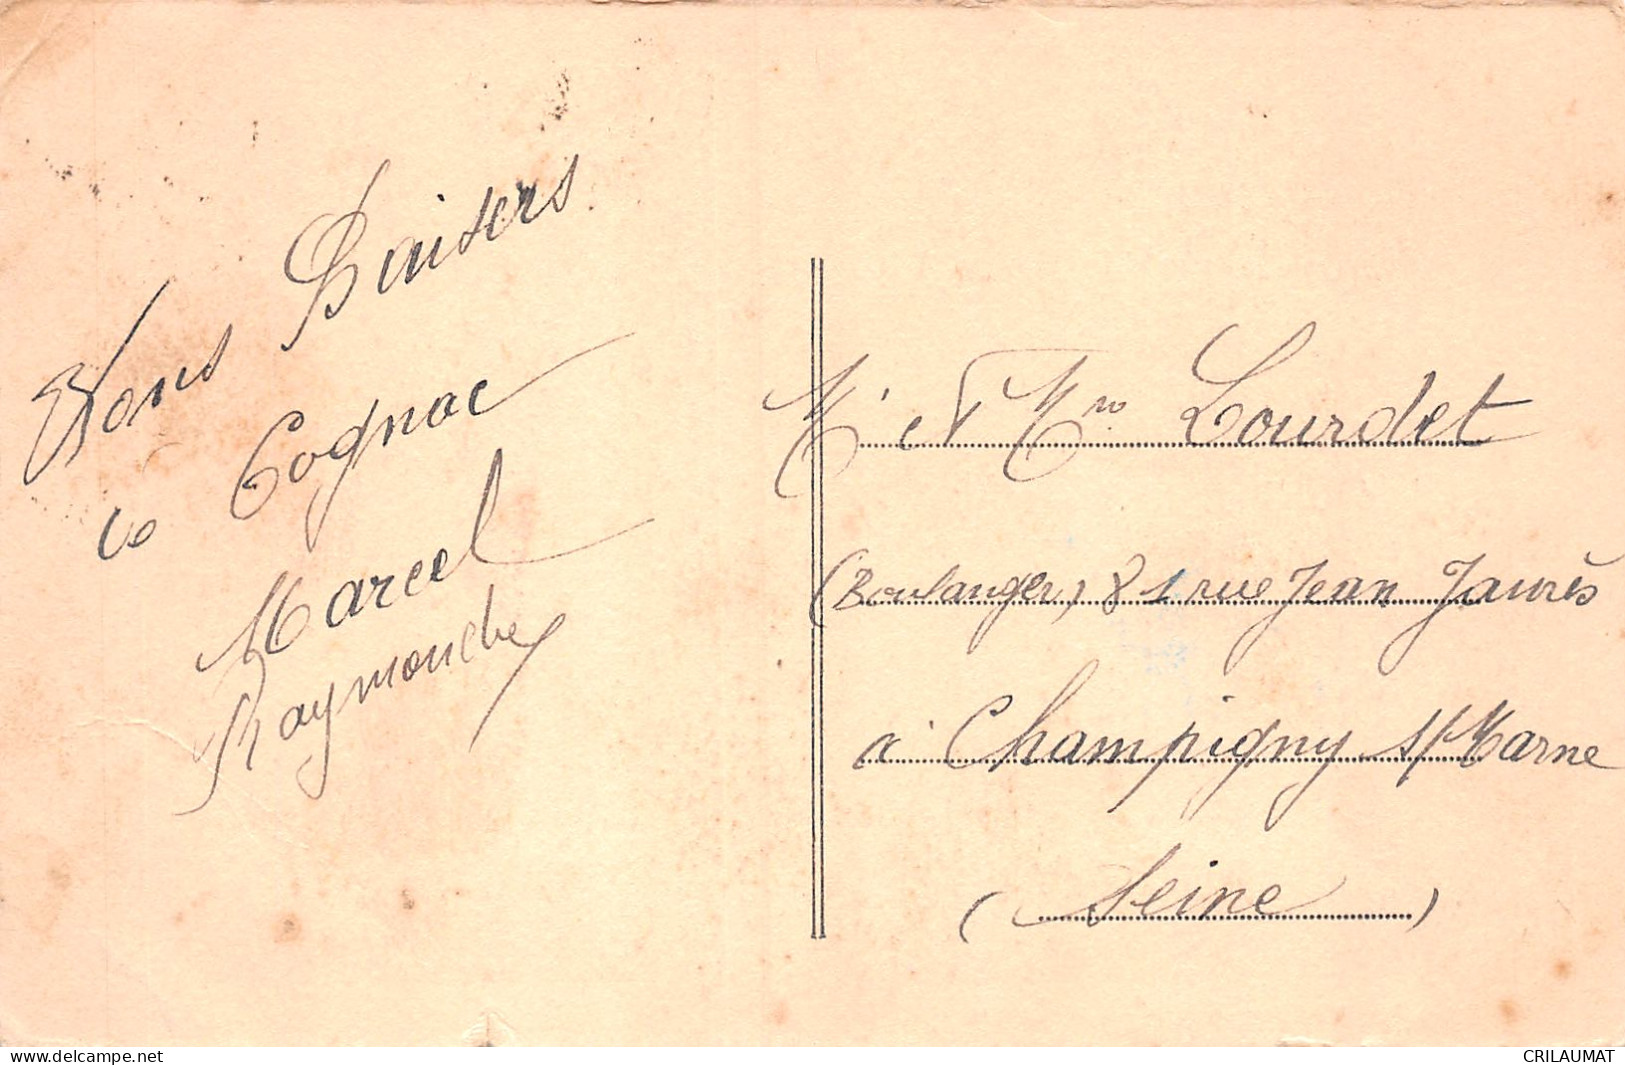 Bons Baisers
de Cognac
Marcel
Raymonde
Mr et Mme Lourdet
(Boulanger) 81 rue Jean Jaurès
à Champigny s/Marne
(Seine)
www.delcampe.net
CRILAUMAT